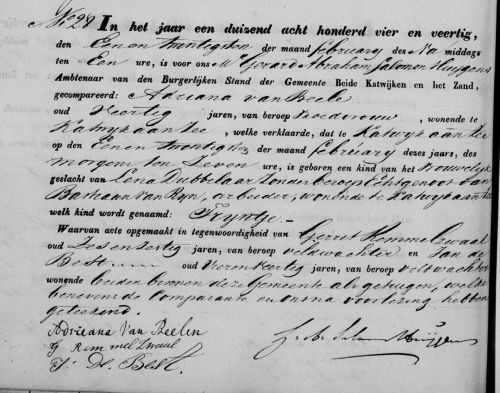 No. 28 In het jaar een duizend acht honderd vier en veertig,
den Een en twintigsten der maand february des Na middags
ten Een ure, is voor ons Mr Gerard Abraham Salomon Huygens
Ambtenaar van den Burgerlijken Stand der Gemeente Beide Katwijken en het Zand,
gecompareerd: Adriana van Beele
oud Veertig jaren, van beroep Vroedvrouw, wonende te
Katwyk aan Zee, welke verklaarde, dat te Katwyk aan Zee
op den Een en twintigsten der maand february dezes jaars, des
morgens ten Zeven ure, is geboren een kind van het Vrouwelyk
geslacht van Lena Dubbelaar zonder beroep Echtgenoot van
Bastiaan van Ryn, arbeider, wonende te Katwyk aan Zee
welk kind wordt genaamd: Tryntje
Waarvan acte opgemaakt in tegenwoordigheid van Gerret Remmelzwaal
oud Zes en dertig jaren, van beroep veldwachter en Jan de
Best oud Vier en veertig jaren, van beroep veldwachter
wonende beiden binnen deze Gemeente als getuigen, welke
benevens de Comparante en ons na voorlezing hebben
geteekend.
Adrieana Van Beelen
G Remmelzwaal
J. De Best